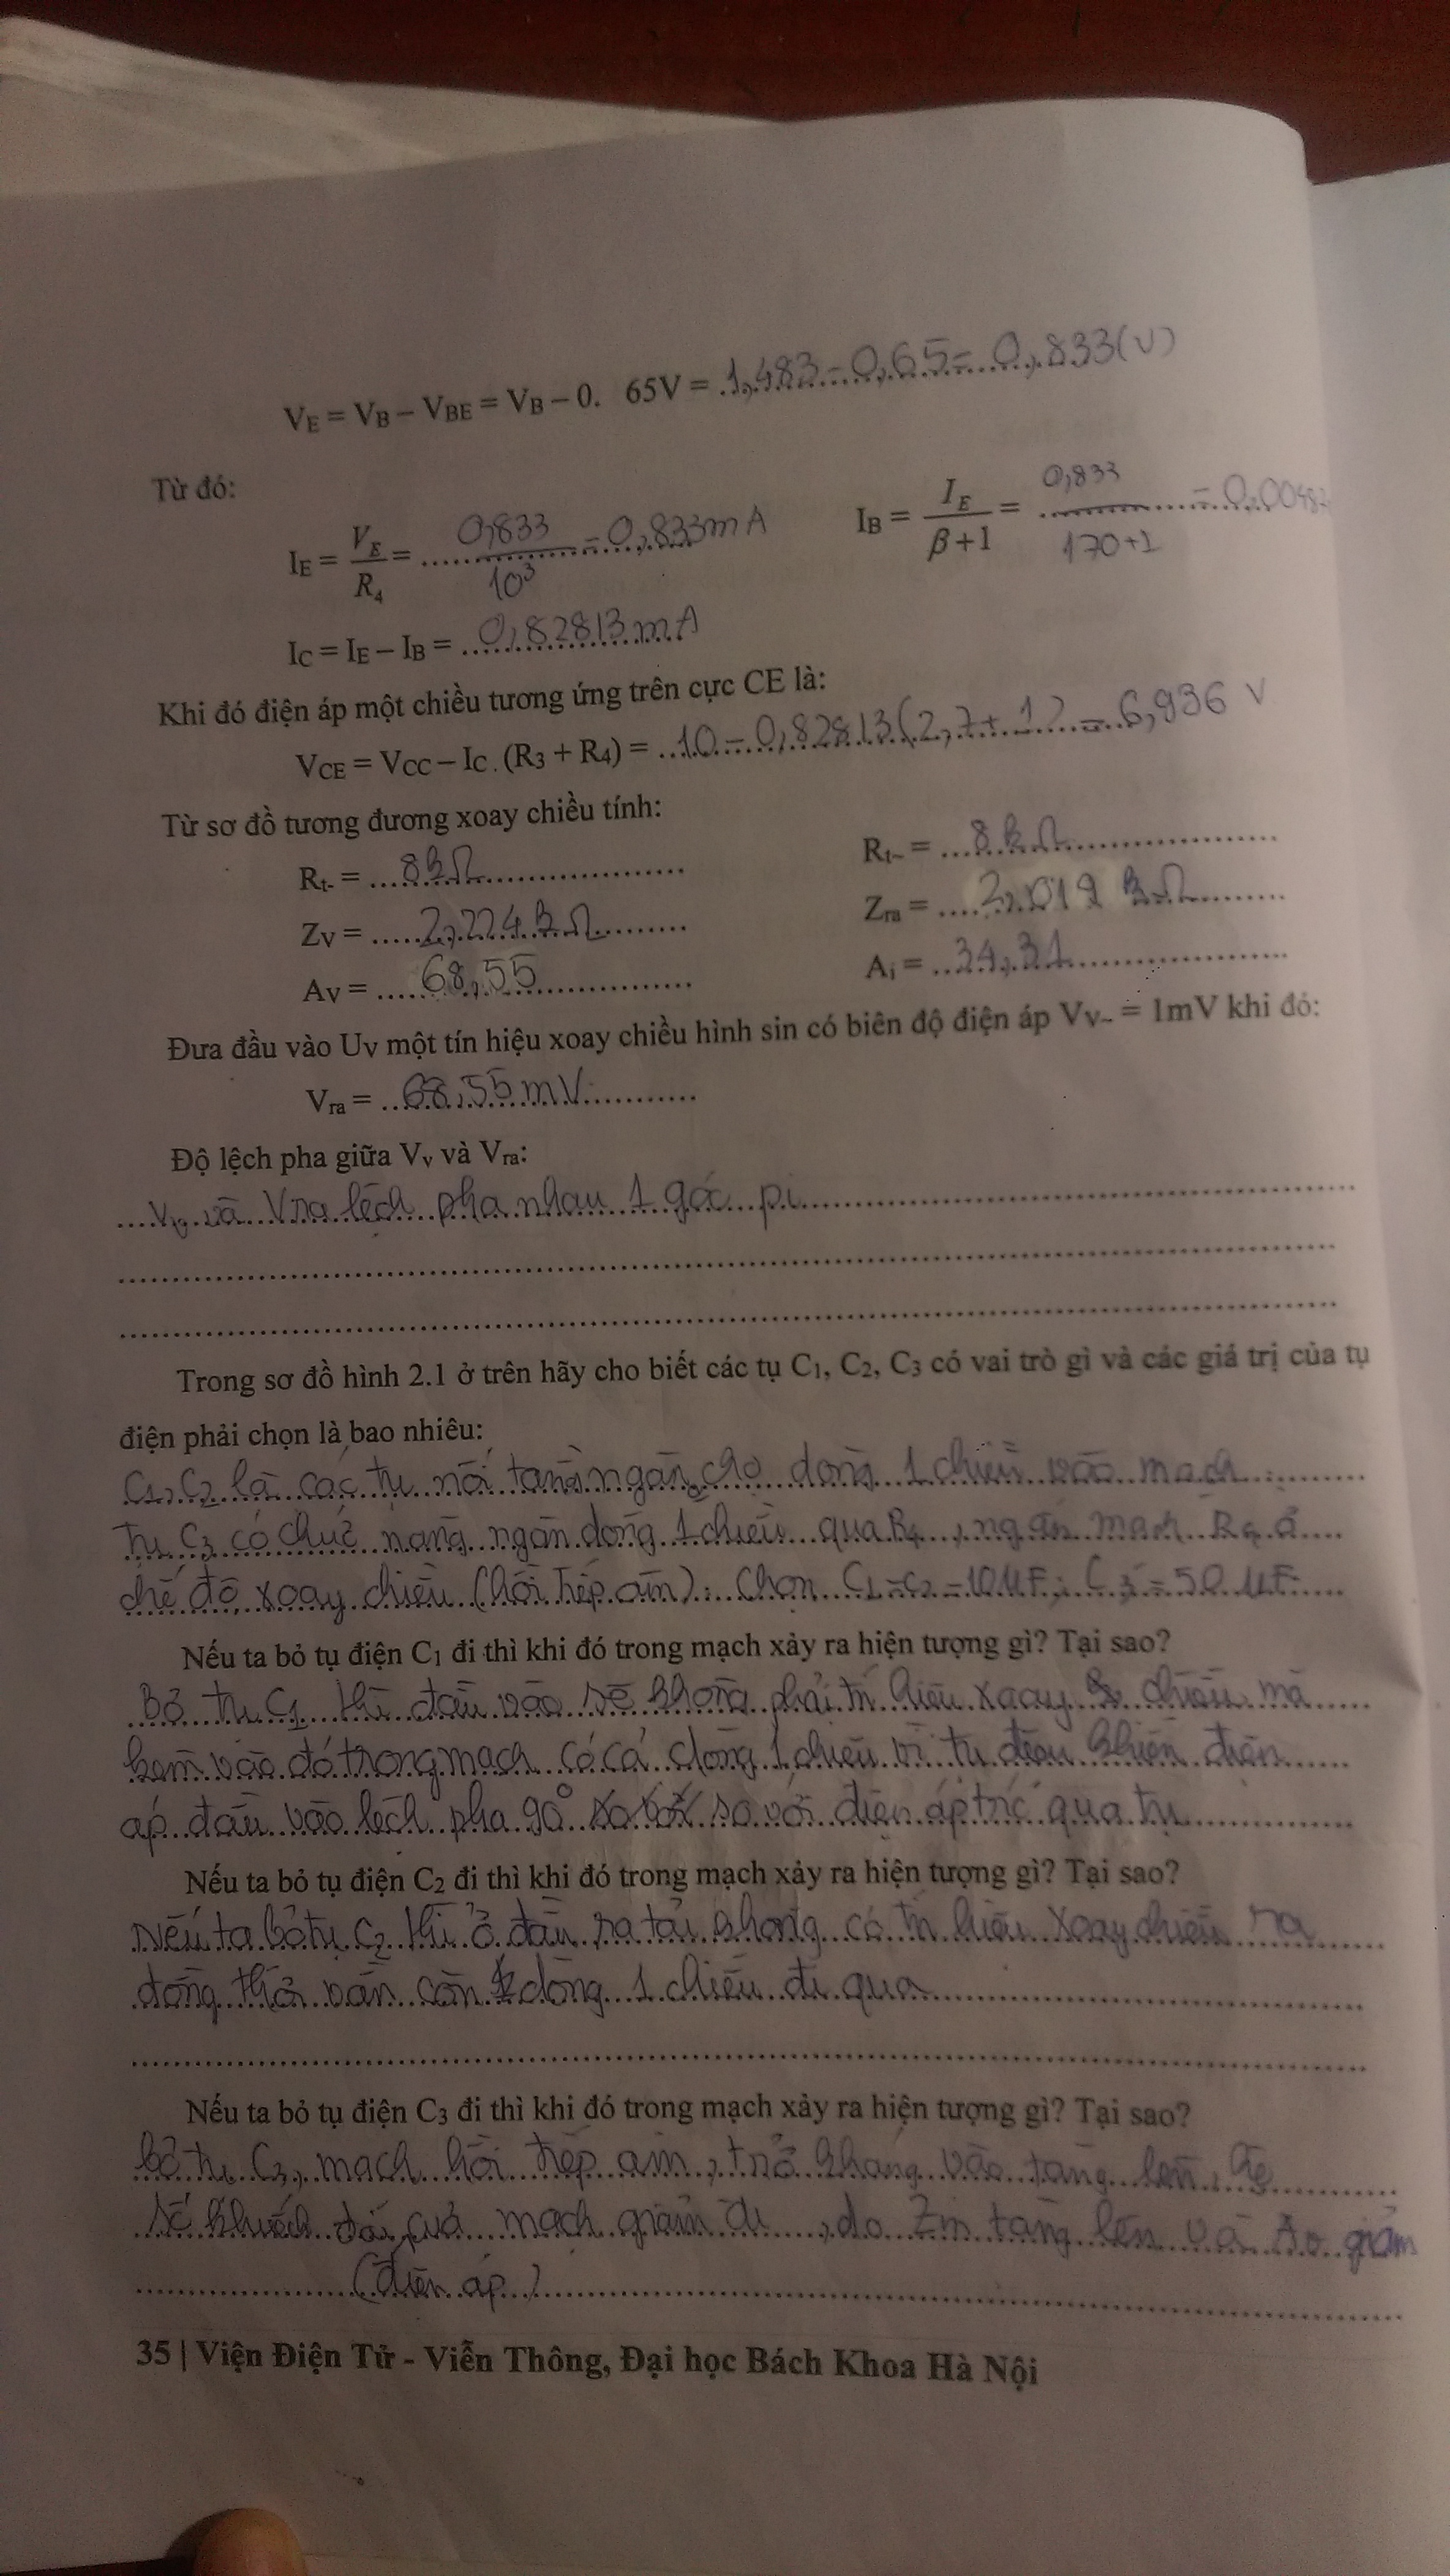 V_E = V_B – V_BE = V_B – 0. 65V = 1,483 – 0,65 = 0,833 (V)
Từ đó:
I_E = V_E / R_4 = 0,833 / 10^3 = 0,833mA I_B = I_E / (β+1) = 0,833 / (170+1) =
I_C = I_E – I_B = 0,82813 mA
Khi đó điện áp một chiều tương ứng trên cực CE là:
V_CE = V_CC – I_C . (R_3 + R_4) = 10 – 0,82813(2,7+1) = 6,936 V
Từ sơ đồ tương đương xoay chiều tính:
R_t- = 8kΩ R_t~ = 8kΩ
Z_V = 2,224 kΩ Z_ra = 2,019 kΩ
A_V = 68,55 A_i = 34,31
Đưa đầu vào U_V một tín hiệu xoay chiều hình sin có biên độ điện áp V_V~ = 1mV khi đó:
V_ra = 68,55 mV
Độ lệch pha giữa V_v và V_ra:
V_v và Vra lệch pha nhau 1 góc pi
Trong sơ đồ hình 2.1 ở trên hãy cho biết các tụ C_1, C_2, C_3 có vai trò gì và các giá trị của tụ
điện phải chọn là bao nhiêu:
C_1, C_2 là các tụ nối tầng ngăn cho dòng 1 chiều vào mạch
Tụ C_3 có chức năng ngăn dòng 1 chiều qua R_4, ngắn mạch R_4 ở
chế độ xoay chiều (hồi tiếp âm). Chọn C_1 = C_2 = 10 μF; C_3 = 50 μF
Nếu ta bỏ tụ điện C_1 đi thì khi đó trong mạch xảy ra hiện tượng gì? Tại sao?
Bỏ tụ C_1 thì đầu vào sẽ không phải tín hiệu xoay chiều mà
kèm vào đó trong mạch có cả dòng 1 chiều vì tụ điều khiển điện
áp đầu vào lệch pha 90° so với điện áp trước qua tụ
Nếu ta bỏ tụ điện C_2 đi thì khi đó trong mạch xảy ra hiện tượng gì? Tại sao?
Nếu ta bỏ tụ C_2 thì ở đầu ra tải không có tín hiệu xoay chiều ra
đồng thời vẫn còn dòng 1 chiều đi qua
Nếu ta bỏ tụ điện C_3 đi thì khi đó trong mạch xảy ra hiện tượng gì? Tại sao?
bỏ tụ C_3, mạch hồi tiếp âm, trở kháng vào tăng lên, hệ
số khuếch đại của mạch giảm đi, do Zin tăng lên và giảm
(điện áp)
35 | Viện Điện Tử - Viễn Thông, Đại học Bách Khoa Hà Nội